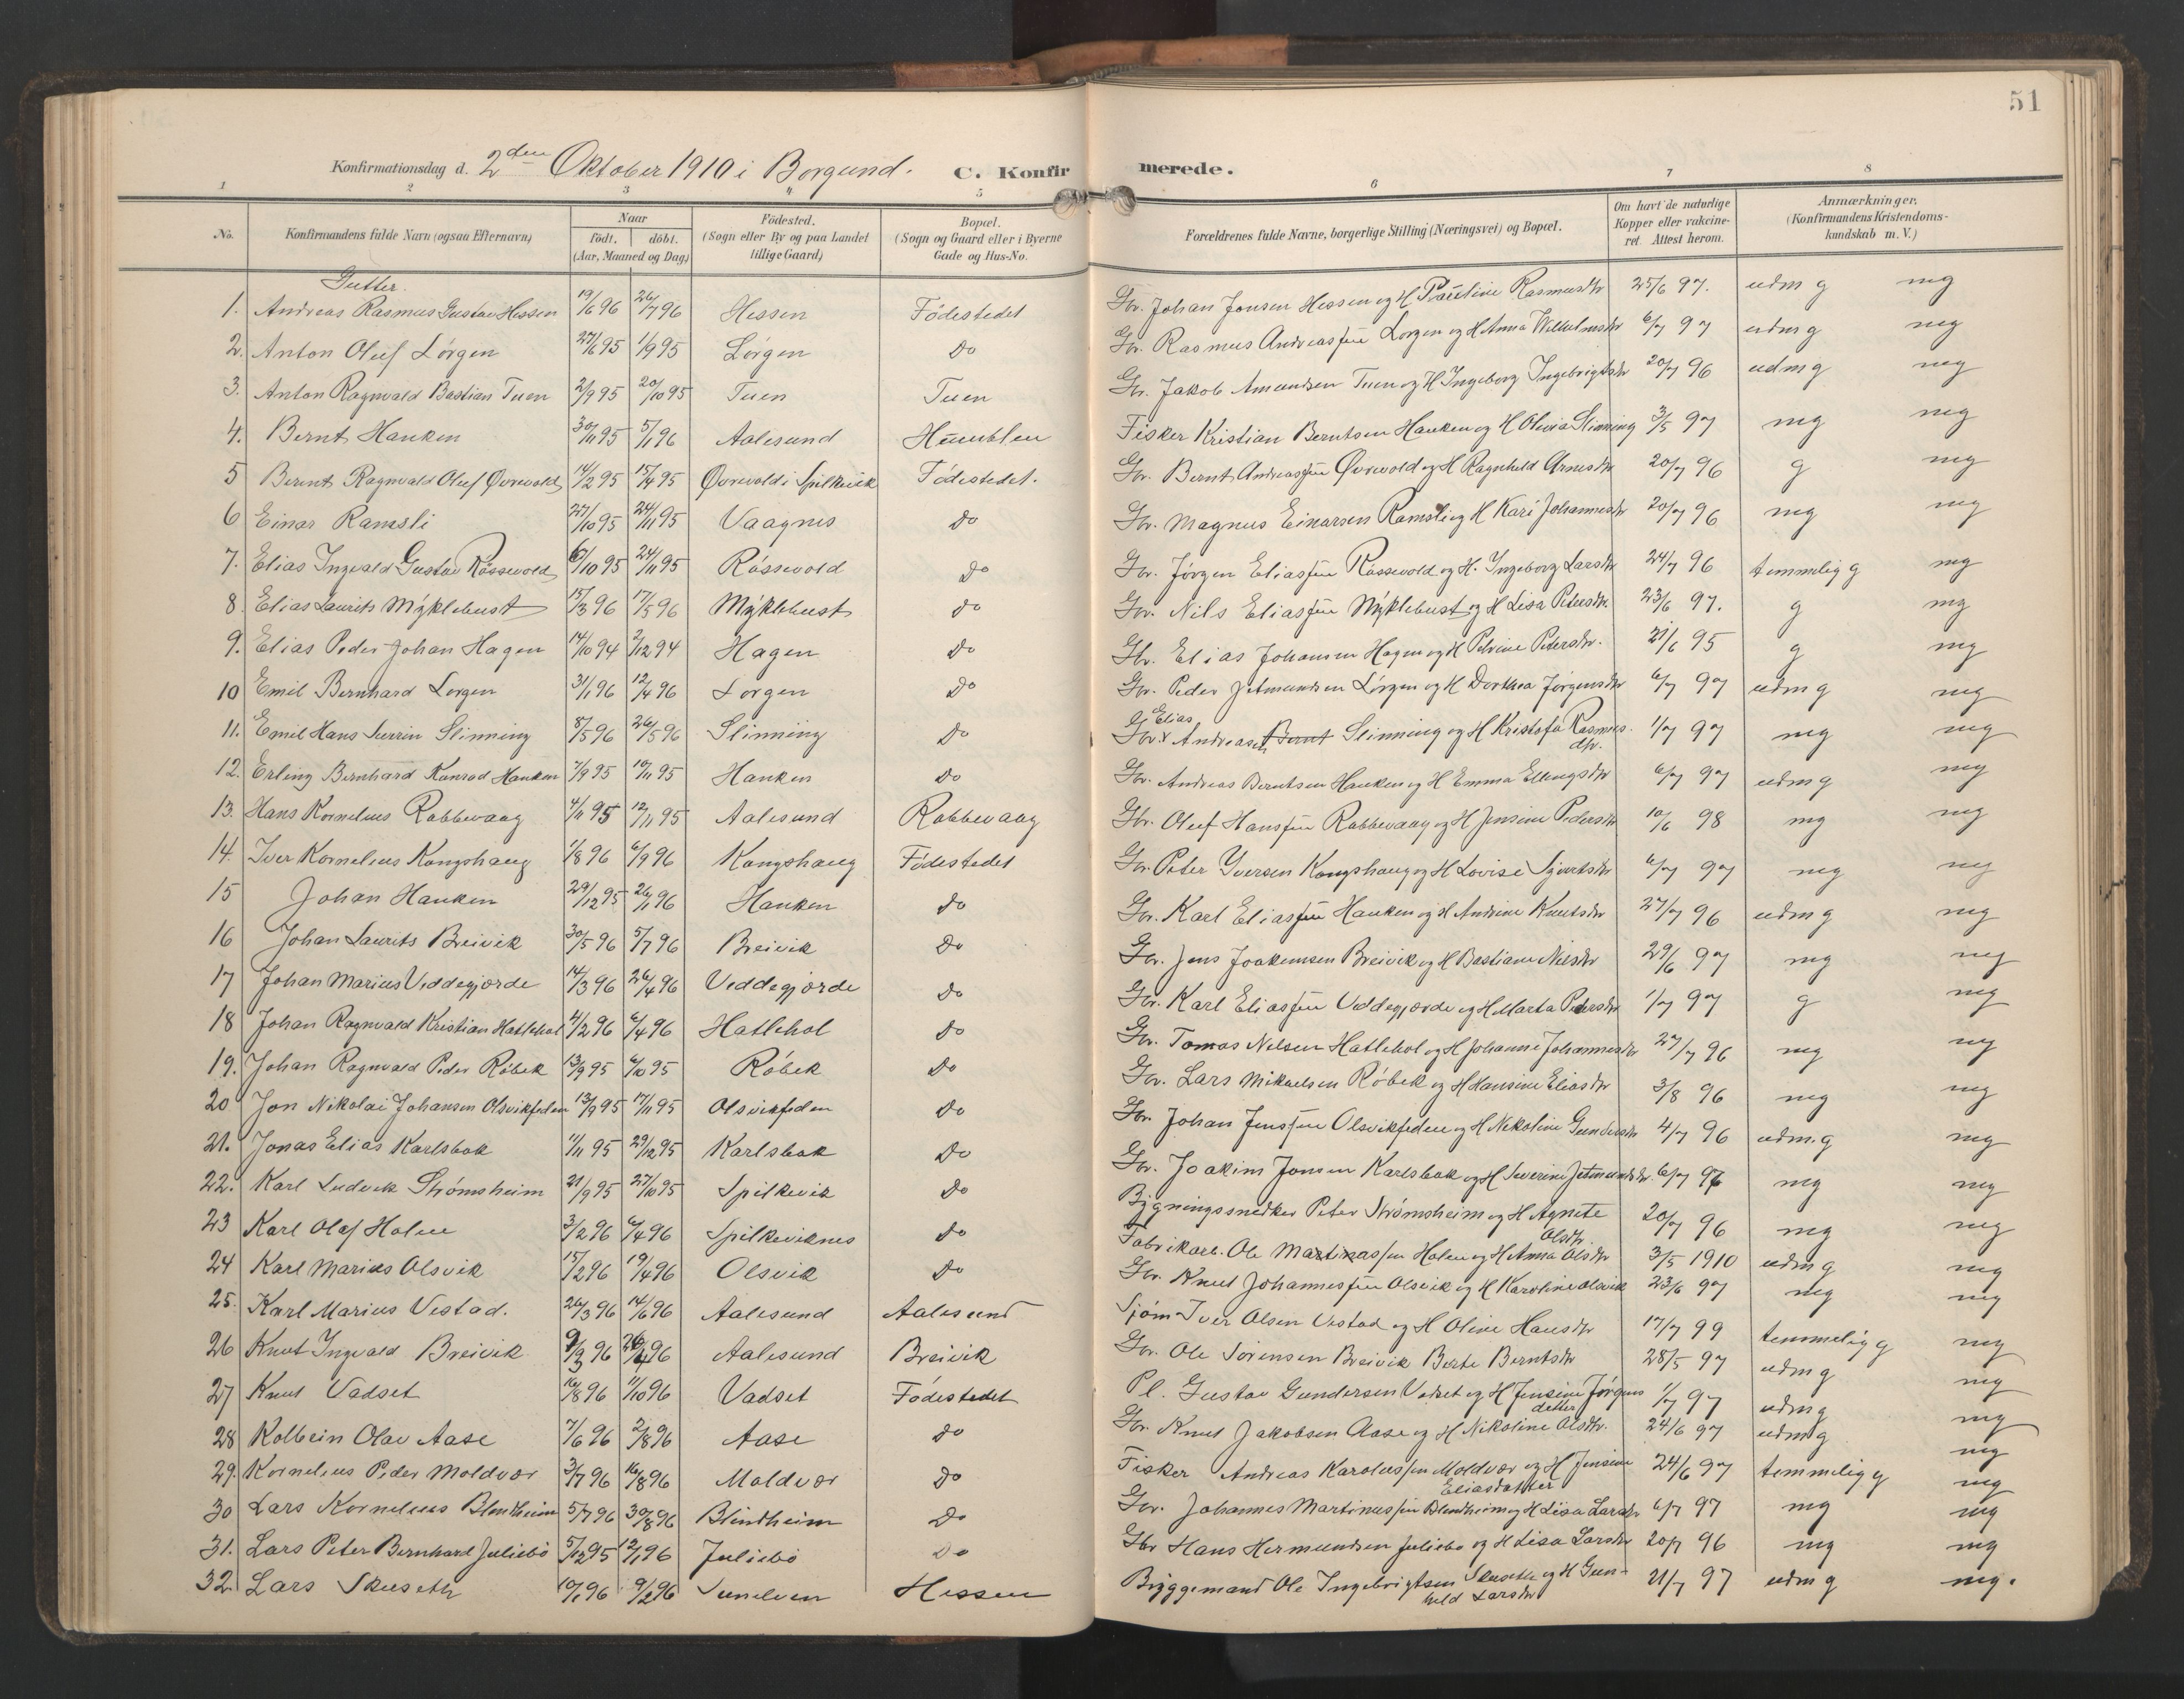 51
Konfirmationsdag d. 2den Oktober 1910 i Borgund. C. Konfirmerede.
1 2 3 4 5 6 7 8
No. Konfirmandens fulde Navn (ogsaa Efternavn) Naar födt. döbt. (Aar, Maaned og Dag) Födested. (Sogn eller By og paa Landet tillige Gaard) Bopæl. (Sogn og Gaard eller i Byerne Gade og Hus-No. Forældrenes fulde Navne, borgerlige Stilling (Næringsvei) og Bopæl. Om havt de naturlige Kopper eller vakcineret. Attest herom. Anmærkninger. (Konfirmandens Kristendomskundskab m. V.)
Gutter.
1. Andreas Rasmus Gustav Hessen 19/6 96 26/7 96 Hessen Födestedet Gbr. Johan Jonsen Hessen og H Pauline Rasmusdtr 25/6 97. udm g mg
2. Anton Oluf Lörgen 27/6 95 1/9 95 Lörgen Do Gbr. Rasmus Andreassen Lorgen og H Anna Wilhelmsdtr 6/7 97 udm g mg
3. Anton Ragnvald Bastian Tuen 2/9 95 20/10 95 Tuen Tuen Gbr. Jakob Amundsen Tuen og H Ingeborg Ingebrigtsdtr 20/7 96 udm g mg
4. Bernt Hanken 30/11 95 5/1 96 Aalesund Humblen Fisker Kristian Berntsen Hanken og H Olivia Slinning 3/5 97 mg mg
5 Bernt Ragnvald Oluf Øvrevold 14/2 95 15/4 95 Øvrevold i Spilkevik Födestedet. Gbr. Bernt Andreassen Øvrevold og H Ragnhild Arnesdtr 20/7 96 g mg
6 Einar Ramsli 27/10 95 24/11 95 Vaagnes Do Gbr. Magnus Einarsen Ramsli og H Kari Johannesdtr 20/7 96 mg mg
7. Elias Ingvald Gustav Rössevold 6/10 95 24/11 95 Rössevold Do Gbr. Jørgen Eliassen Rössevold og H. Ingeborg Larsdtr 24/7 96 temmelig g mg
8. Elias Laurits Myklebust 15/3 96 17/5 96 Myklebust Do Gbr. Nils Eliassen Myklebust og H Lisa Petersdtr. 23/6 97. g mg
9. Elias Peder Johan Hagen 14/10 94 2/12 94 Hagen Do Gbr. Elias Johansen Hagen og H Petrine Petersdtr. 21/6 95 g mg
10 Emil Bernhard Lorgen 31/1 96 12/4 96 Lorgen Do Gbr. Peder Jetmundsen Lörgen og H Dorthea Jørgensdtr 6/7 97 udm g mg
11. Emil Hans Severin Slinning 8/5 96 26/5 96 Slinning Do Gbr. Elias Andreasen Bernt Slinning og H Kristofa Rasmusdtr. 1/7 97 mg mg
12. Erling Bernhard Konrad Hanken 7/9 95 10/11 95 Hanken Do Gbr. Andreas Berntsen Hanken og H Emma Ellingsdtr 6/7 97 udm g mg
13. Hans Kornelius Rabbevaag 4/11 95 12/11 95 Aalesund Rabbevaag Gbr. Oluf Hanssen Rabbevaag og H Jensine Pedersdtr 10/6 98 mg mg
14. Iver Kornelius Kongshaug 1/8 96 6/9 96 Kongshaug Födestedet Gbr. Peter Iversen Kongshaug og H Lovise Sjurtsdtr 6/7 97 mg mg
15 Johan Hanken 29/12 95 26/1 96 Hanken Do Gbr. Karl Eliassen Hanken og H Andrine Knutsdtr 27/7 96 udm g mg
16 Johan Laurits Breivik 30/5 96 5/7 96 Breivik Do Gbr. Jens Joakimsen Breivik og H Bastiane Nilsdtr 29/6 97 mg mg
17 Johan Marius Veddegjærde 14/3 96 26/4 96 Veddegjærde Do Gbr. Karl Eliassen Veddegjærde og H Marta Pedersdtr 1/7 97 g mg
18 Johan Ragnvald Kristian Hatlehol 4/2 96 6/4 96 Hatlehol Do Gbr. Tomas Nilsen Hatlehol og H Johanne Johannesdtr 27/7 96 mg mg
19. Johan Ragnvald Peder Röbek 13/9 95 6/10 95 Röbek Do Gbr. Lars Mikaelsen Röbek og H Hansine Eliasdtr 3/8 96 mg mg
20 Jon Nikolai Johansen Olsvikfeden 13/9 95 17/11 95 Olsvikfeden Do Gbr. Johan Jenssen Olsvikfeden og H Nikoline Gundersdtr 4/7 96 udm. g mg
21. Jonas Elias Karlsbak 1/11 95 29/12 95 Karlsbak Do Gbr. Joakim Jonsen Karlsbak og H Severine Jetmundsdtr. 6/7 97 mg mg
22. Karl Ludvik Strömsheim 21/9 95 27/10 95 Spilkevik Do Bygningssnedker Peter Strömsheim og H Agnete Olsdtr. 20/7 96 mg mg
23 Karl Olaf Holen 3/2 96 6/4 96 Spilkeviknes Do Fabrikarb. Ole Martinassen Holen og H Anna Olsdtr 3/5 1910 udm g mg
24 Karl Marius Olsvik 15/2 96 19/4 96 Olsvik Do Gbr. Knut Johannessen Olsvik og H Karoline Olsvik 23/6 97 mg mg
25. Karl Marius Vestad. 26/3 96 14/6 96 Aalesund Aalesund Sjöm. Iver Olsen Vestad og H Oline Hansdtr 17/7 99 temmelig g mg
26 Knut Ingvald Breivik 9/3 96 26/4 96 Aalesund Breivik Gbr. Ole Sörensen Breivik Berte Berntsdtr 28/5 97 udm g mg
27 Knut Vadset 16/8 96 11/10 96 Vadset Födestedet Pl. Gustav Gundersen Vadset og H Jensine Jørgensdatter 1/7 97 udm g mg
28 Kolbein Olav Aase 7/6 96 2/8 96 Aase Do Gbr. Knut Jakobsen Aase og H Nikoline Olsdtr. 24/6 97 udm g mg
29. Kornelius Peder Moldvær 3/7 96 16/8 96 Moldvær Do Fisker Andreas Karolussen Moldvær og H Jensine Eliasdatter 24/6 97 temmelig g mg
30 Lars Kornelius Blindheim 5/7 96 30/8 96 Blindheim Do Gbr. Johannes Martinussen Blindheim og H Lisa Larsdtr 6/7 97 mg mg
31. Lars Peter Bernhard Juliebö 5/12 95 12/1 96 Juliebö Do Gbr Hans Hermundsen Juliebø og H Lisa Larsdtr 20/7 96 mg mg
32. Lars Skuseth 10/1 96 9/2 96 Sunelven Hessen Bryggemand Ole Ingebrigtsen Skuseth og H Gunhild Larsdtr 21/7 97 udm g mg.